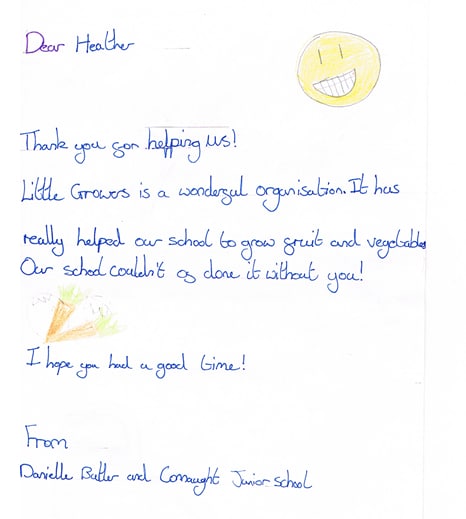 Dear Heather
Thank you for helping us!
Little Growers is a wonderful organisation. It has
really helped our school to grow fruit and vegetables
Our school couldn't of done it without you!
I hope you had a good time!
From
Danielle Butler and Connaught Junior School